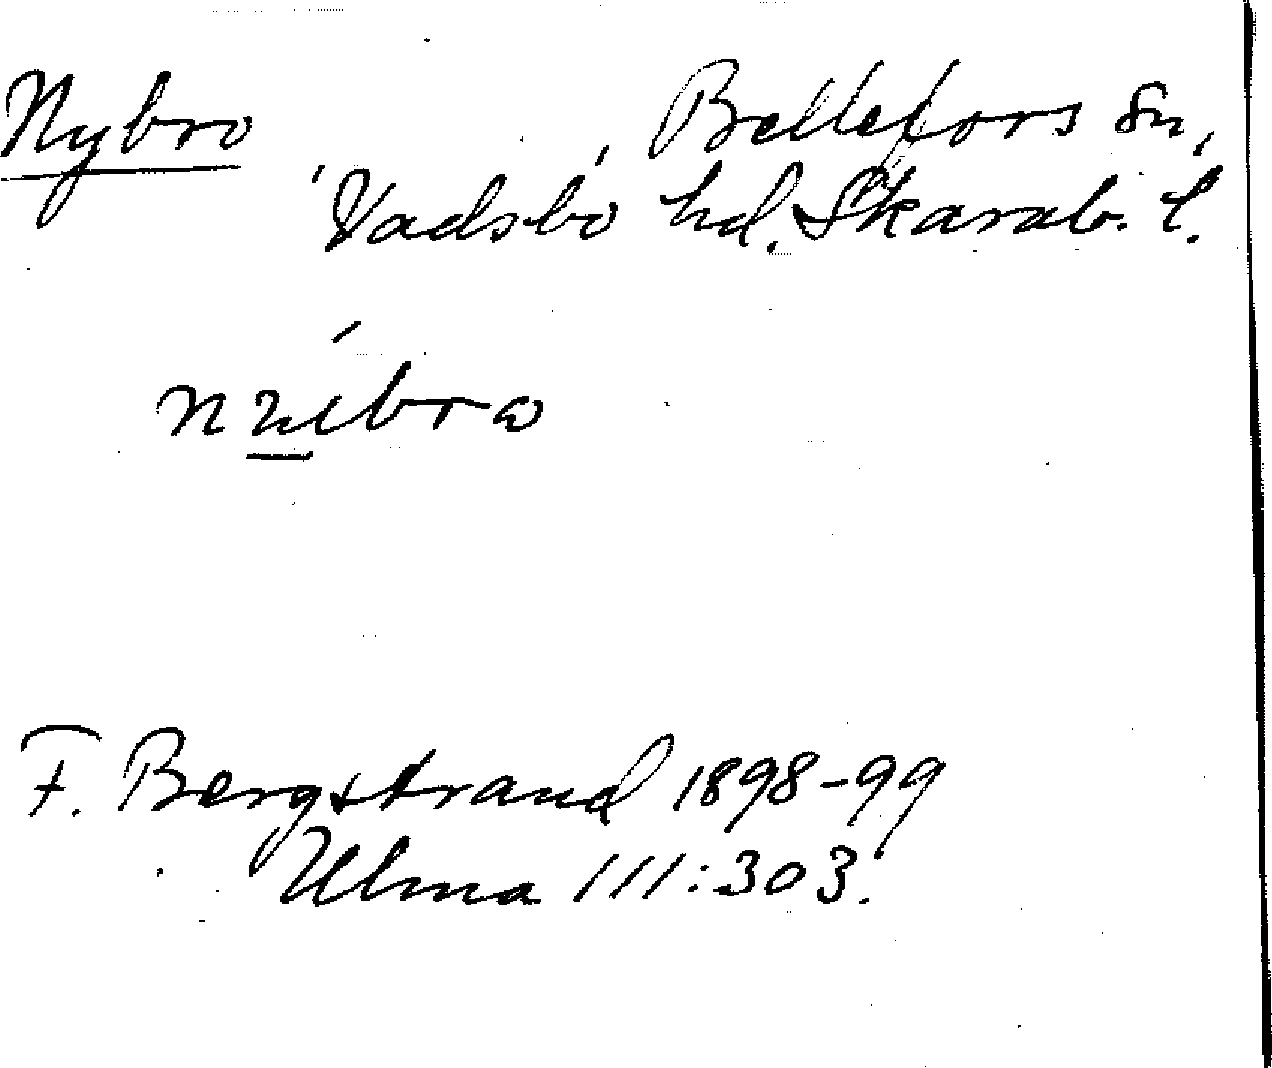 Nybro, Bellefors Sn,
Vadsbo hd. Skarab. l.
F. Bergstrand 1898-99
Ulma 111:303.